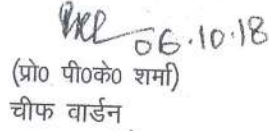 06.10.18
(प्रो० पी०के० शर्मा)
चीफ वार्डन